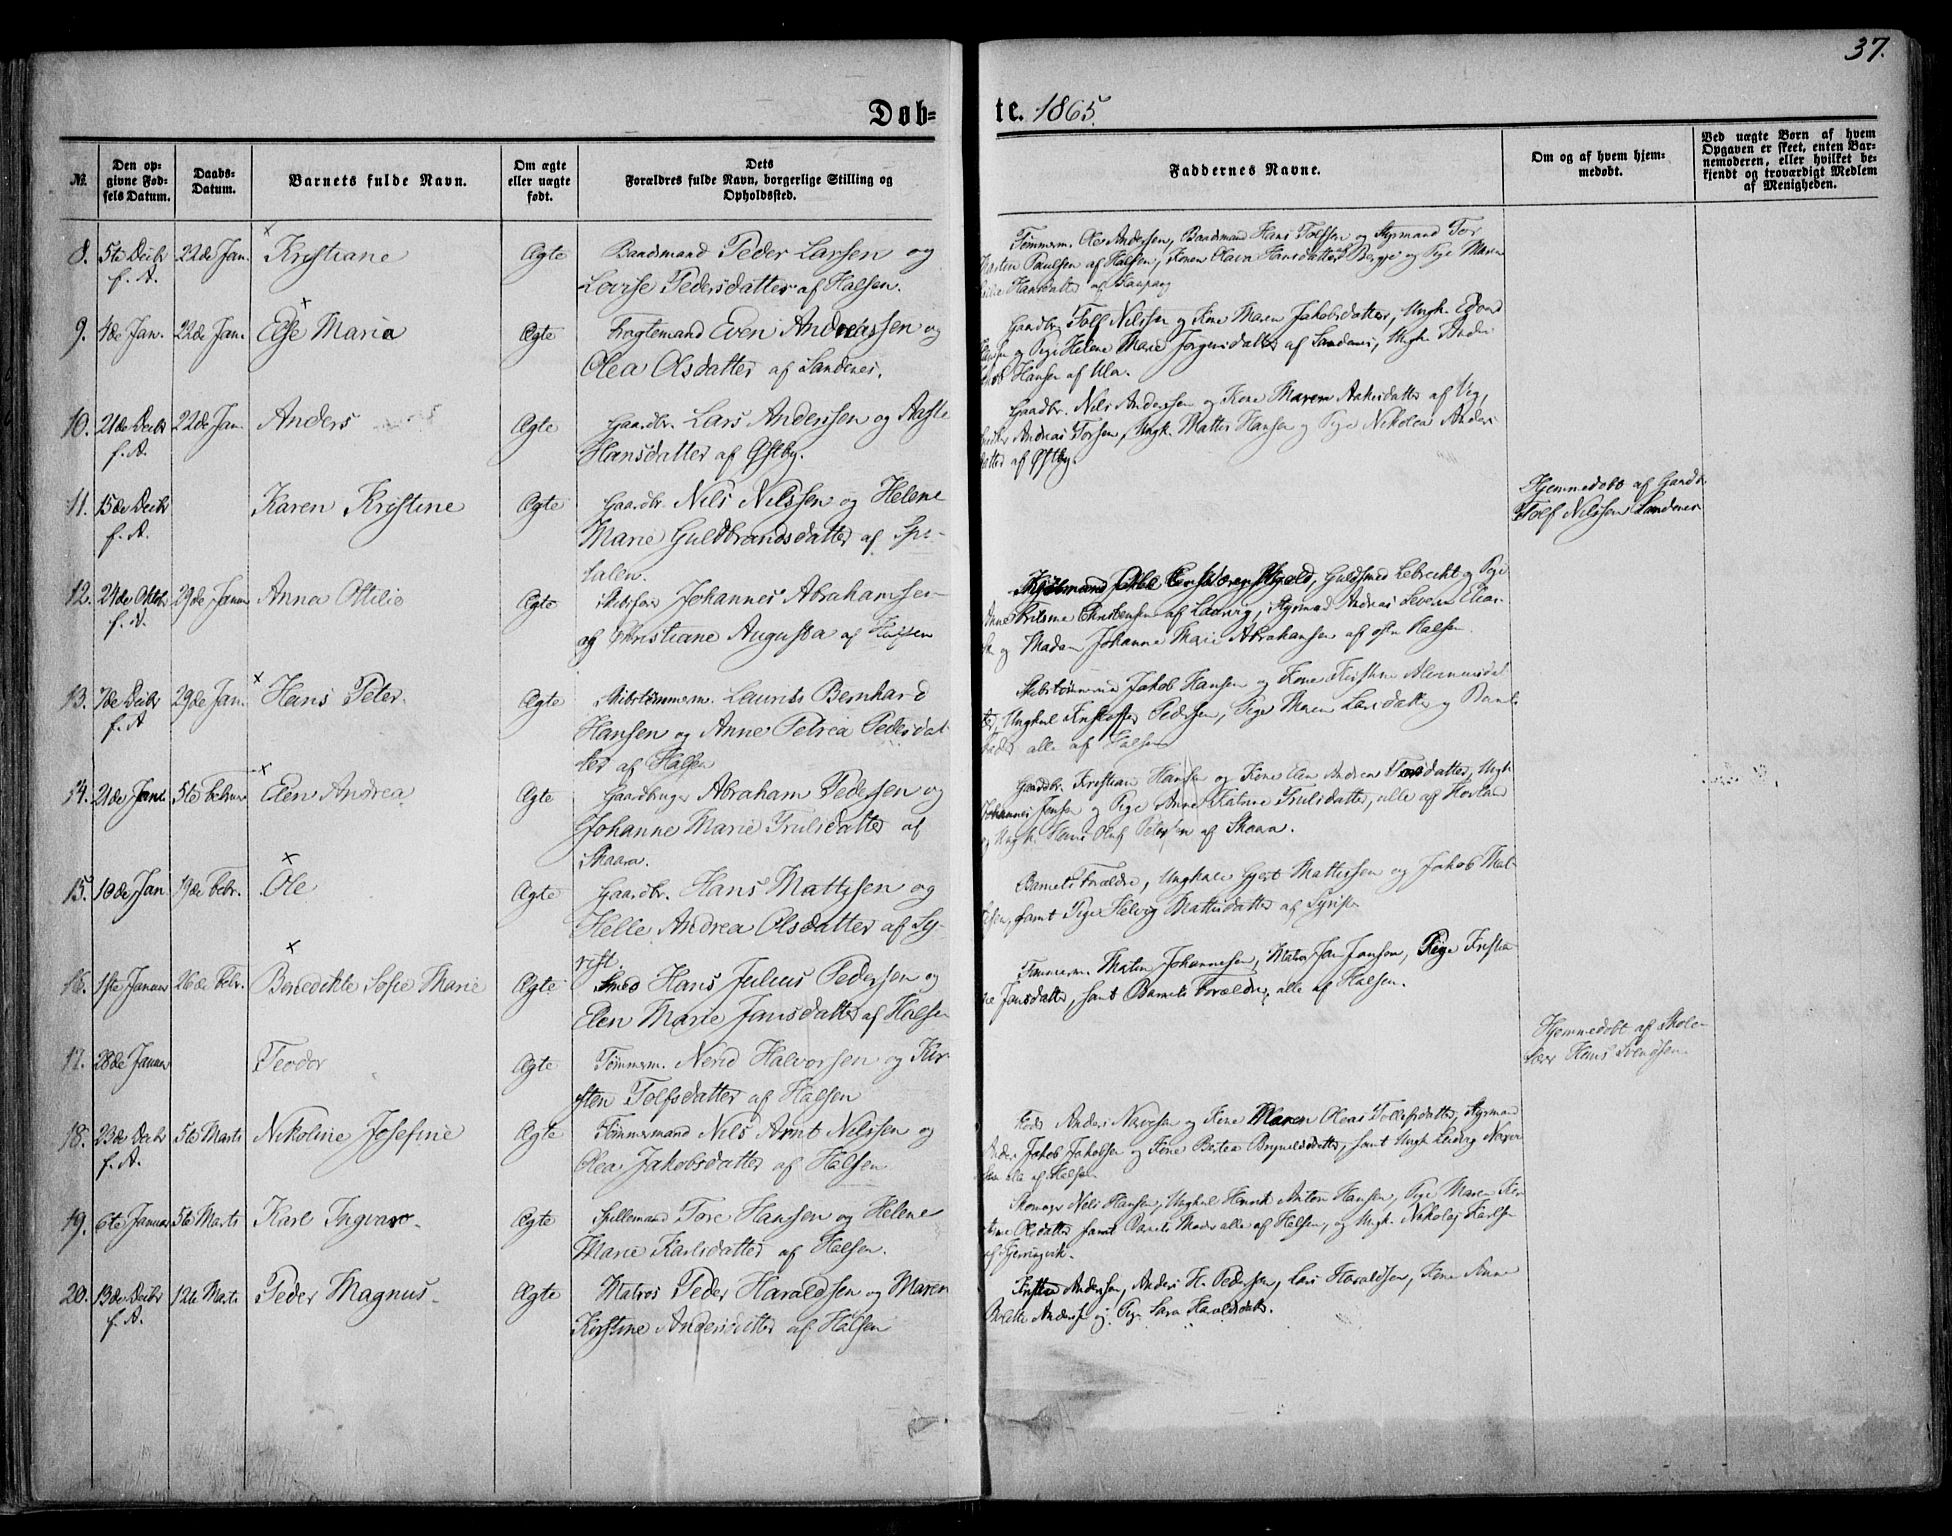 37.
Døb-
te. 1865.
№.
Den op-
givne Fød-
sels Datum.
Daabs-
Datum.
Barnets fulde Navn.
Om ægte
eller uægte
født.
Dets
Forældres fulde Navn, borgerlige Stilling og
Opholdssted.
Faddernes Navne.
Om og af hvem hjem-
medøbt.
Ved uægte Børn af hvem
Opgaven er skeet, enten Bar-
nemoderen, eller hvilket be-
kjendt og troværdigt Medlem
af Menigheden.
8. 5te Decbr 22de Jan. Kristiane Ægte Baadsmand Peder Larsen og
f. A. Lovise Pedersdatter af Halsen.
Tømmerm. Ole Andersen, Baadsmand Hans Tolfsen og Styrmand Tor
Paulsen af Halsen, Konen Olava Hansdatter af Bergge og Pige Maren
Hansdatter af Kaupang
9. 4de Jan. 22de Jan. Else Maria Ægte Fragtemand Even Andreassen og
Olea Olsdatter af Sandenes.
Gaardbr. Tolf Nilssen og Kone Maren Jakobsdatter, Ungk. Edvard
og Pige Helene Marie Jørgensdatter af Sandenes, Ungk. Anders
Hansen af Ula.
10. 21de Decbr 22de Jan. Anders Ægte Gaardbr. Lars Anderssen og Aaste
f. A. Hansdatter af Østby.
Gaardbr. Nils Anderssen og Kone Maren Aakesdatter af Veg,
Andreas Torsen, Ungk. Mattis Hansen og Pige Nikolea Anders
datter af Østby.
11. 15de Decbr Karen Kristine Ægte Gaardbr. Nils Nilssen og Helene
f. A. Marie Guldbrandsdatter af Spi-
talen.
Hjemmedøbt af Gaardb.
Tolf Nilssen Sandenes
12. 24de Oktbr 29de Januar Anna Ottilie Ægte Skibsfører Johannes Abrahamsen
f. A. og Kristiane Augusta af Halsen
Guldsmed Lebrecht og Pige
Anne Christensen af Laurvig, Styrmand Andreas Severin Elias-
sen og Madam Johanne Marie Abrahamsen af østre Halsen.
13. 7de Decbr 29de Jan. Hans Peter. Ægte Skibstømmerm. Laurits Bernhard
f. A. Hansen og Anne Petrea Pedersdat-
ter af Halsen
Skibstømmermand Jakob Hansen og Kone Kirstine
Ungkarl Kristoffer Pedersen, Pige Maren Larsdatter og Barnets
Fader alle af Halsen
14. 21de Jan. 5te Februar Elen Andrea Ægte Gaardbruger Abraham Pedersen og
Johanne Marie Trulsdatter af
Skaara.
Gaardbr. Kristian Hansen og Kone Elen Andrea datter, Ungk
Johannes Jensen og Pige Anne Katrine Trulsdatter, alle af Hovland
og Ungk. Hans Oluf Petersen af Skaara.
15. 10de Jan 19de Febr. Ole Ægte Gaardbr. Hans Mattisen og
Helle Andrea Olsdatter af Sy-
rist.
Barnets Forældre, Ungkarle Gjert Mattissen og Jakob Mat-
tisen, samt Pige Helvig Mattisdatter af Syrist
16. 1ste Januar 26de Febr. Benedikte Sofie Marie Ægte Smed Hans Julius Pedersen og
Elen Marie Jansdatter af Halsen
Tømmerm. Matin Johannesen, Matros Jan Jansen, Pige Kristia-
ne Jansdatter, samt Barnets Forældre, alle af Halsen.
17. 28de Januar Teodor Ægte Tømmerm. Nerid Halvorsen og Kir
sten Tolfsdatter af Halsen
Hjemmedøbt af Skole-
lærer Hans Svendsen
18. 23de Decbr 5te Marts Nikoline Josefine Ægte Tømmermand Nils Arnt Nilssen og
f. A. Olea Jakobsdatter af Halsen
Anders Navesen og Kone Maren Olea Tollefsdatter, Styrmand
Anders Jakob Jakobsen og Kone Bertea Brynildsdatter, samt Ungk Ludvig
alle af Halsen
19. 6te Januar 5te Marts Karl Ingvar Ægte Spillemand Tore Hansen og Helene
Marie Karlsdatter af Halsen.
Skomager Nils Hansen, Ungkarl Henrik Anton Hansen, Pige Maren Kir
stine Olsdatter samt Barnets Moder alle af Halsen, og Ungk. Nikolaj Karlsen
af Kjerringvik.
20. 13de Decbr 12te Marts Peder Magnus Ægte Matros Peder Haraldsen og Maren
f. A. Kirstine Andersdatter af Halsen
Kristen Andersen, Anders H. Pedersen, Lars Haraldsen, Kone Anne
Beritte Andersd og Pige Sara Haraldsdatter.